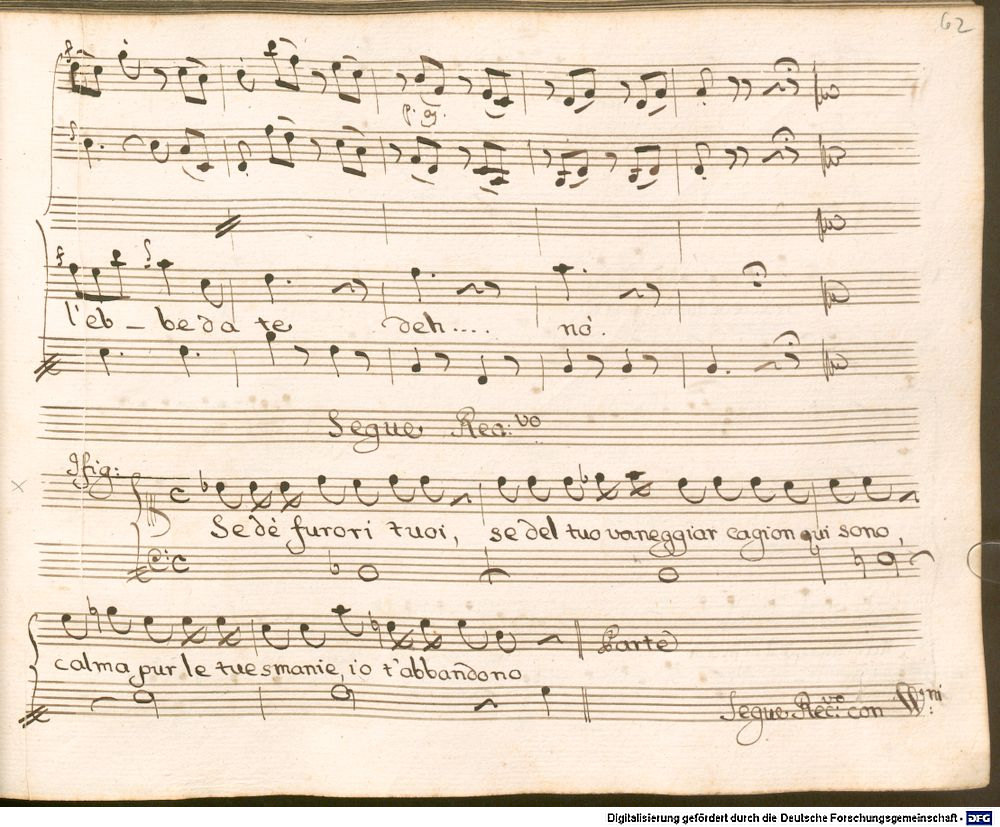 62
p: g:
l'eb - be da te deh.... nò.
Segue Rec:vo
Ifig:
Se dè furori tuoi, se del tuo vaneggiar cagion qui sono,
calma pur le tue smanie, io t'abbandono
Parte
Segue Rec:vo con W:ni
Digitalisierung gefördert durch die Deutsche Forschungsgemeinschaft - DFG